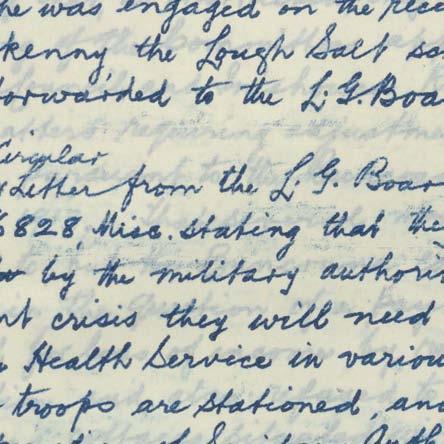 he was engaged on the
kenny the Lough Salt
forwarded to the L. G. Boa
Circular
Letter from the L. G. Boar
828, Misc. stating that the
by the military authori
nt crisis they will need
Health Service in variou
troops are stationed, and